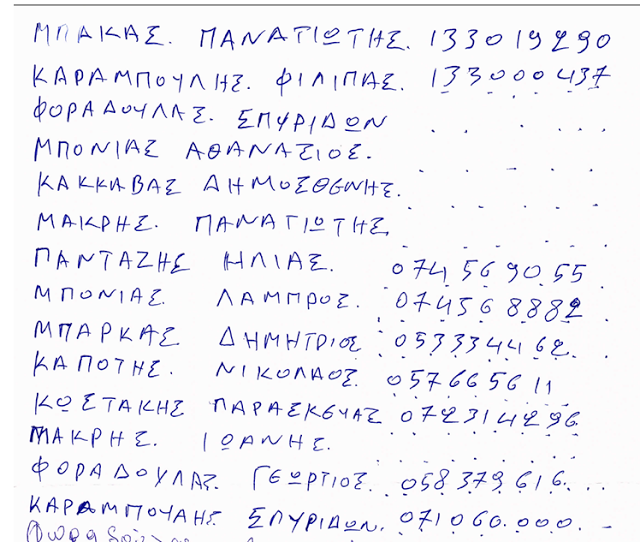 ΜΠΑΚΑΣ. ΠΑΝΑΓΙΩΤΗΣ. 133019290
ΚΑΡΑΜΠΟΥΛΗΣ. ΦΙΛΙΠΑΣ. 133000437
ΦΟΡΑΔΟΥΛΑΣ. ΣΠΥΡΙΔΩΝ
ΜΠΟΝΙΑΣ ΑΘΑΝΑΣΙΟΣ.
ΚΑΚΚΑΒΑΣ ΔΗΜΟΣΘΕΝΗΣ.
ΜΑΚΡΗΣ. ΠΑΝΑΓΙΩΤΗΣ
ΠΑΝΤΑΖΗΣ ΗΛΙΑΣ. 074569055
ΜΠΟΝΙΑΣ. ΛΑΜΠΡΟΣ. 074568882
ΜΠΑΡΚΑΣ ΔΗΜΗΤΡΙΟΣ 053334462.
ΚΑΠΟΤΗΣ. ΝΙΚΟΛΑΟΣ. 057665611
ΚΩΣΤΑΚΗΣ ΠΑΡΑΣΚΕΥΑΣ 072314296
ΜΑΚΡΗΣ. ΙΩΑΝΗΣ.
ΦΟΡΑΔΟΥΛΑΣ. ΓΕΩΡΓΙΟΣ. 058379616.
ΚΑΡΑΜΠΟΥΛΗΣ ΣΠΥΡΙΔΩΝ. 071060.000.